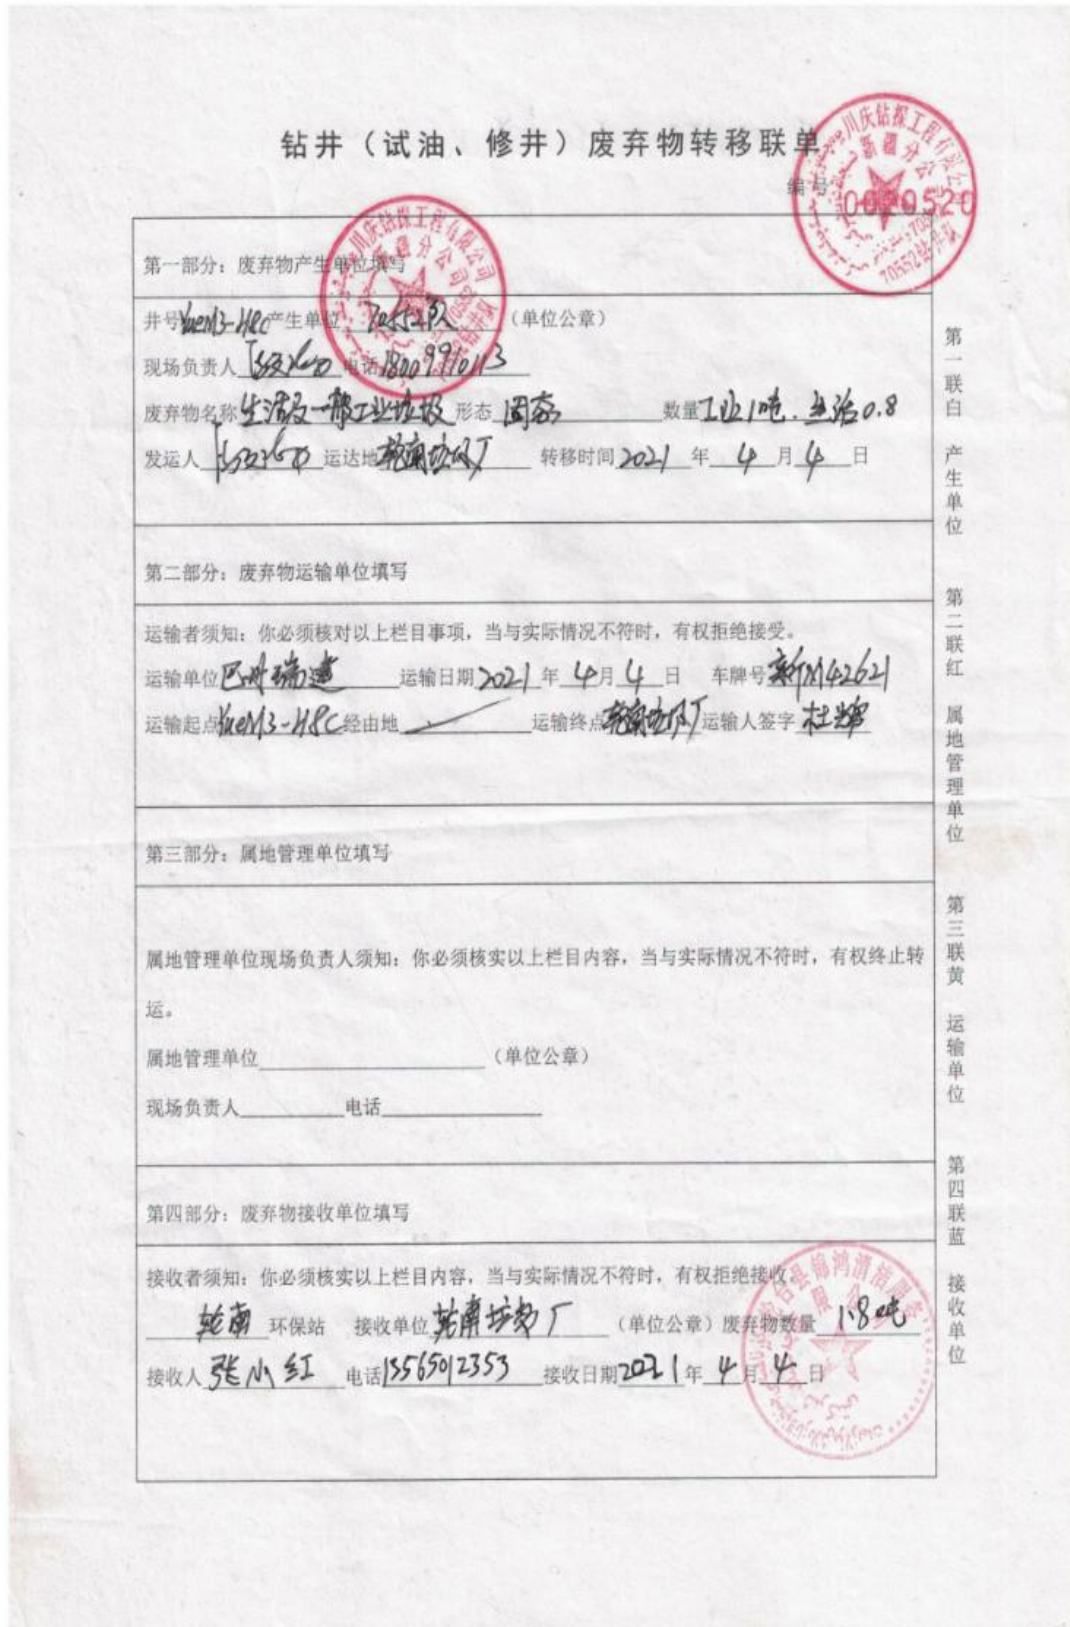 钻井（试油、修井）废弃物转移联单
编号 0000520
川庆钻探工程有限公司
新疆分公司
70552
第一部分：废弃物产生单位填写
井号YueM3-H8C产生单位 70552队 （单位公章）
现场负责人 电话18009910113
废弃物名称 生活及一般工业垃圾 形态 固态 数量 工业1吨、生活0.8
发运人 运达地 轮南垃圾厂 转移时间 2021 年 4 月 4 日
第二部分：废弃物运输单位填写
运输者须知：你必须核对以上栏目事项，当与实际情况不符时，有权拒绝接受。
运输单位 巴州瑞达 运输日期 2021 年 4 月 4 日 车牌号 新M42621
运输起点 YueM3-H8C 经由地 运输终点 轮南垃圾厂 运输人签字 杜辉
第三部分：属地管理单位填写
属地管理单位现场负责人须知：你必须核实以上栏目内容，当与实际情况不符时，有权终止转
运。
属地管理单位 （单位公章）
现场负责人 电话
第四部分：废弃物接收单位填写
接收者须知：你必须核实以上栏目内容，当与实际情况不符时，有权拒绝接收。
轮南 环保站 接收单位 轮南垃圾厂 （单位公章）废弃物数量 1.8吨
接收人 张小红 电话 13565012353 接收日期 2021 年 4 月 4 日
第一联白 产生单位
第二联红 属地管理单位
第三联黄 运输单位
第四联蓝 接收单位